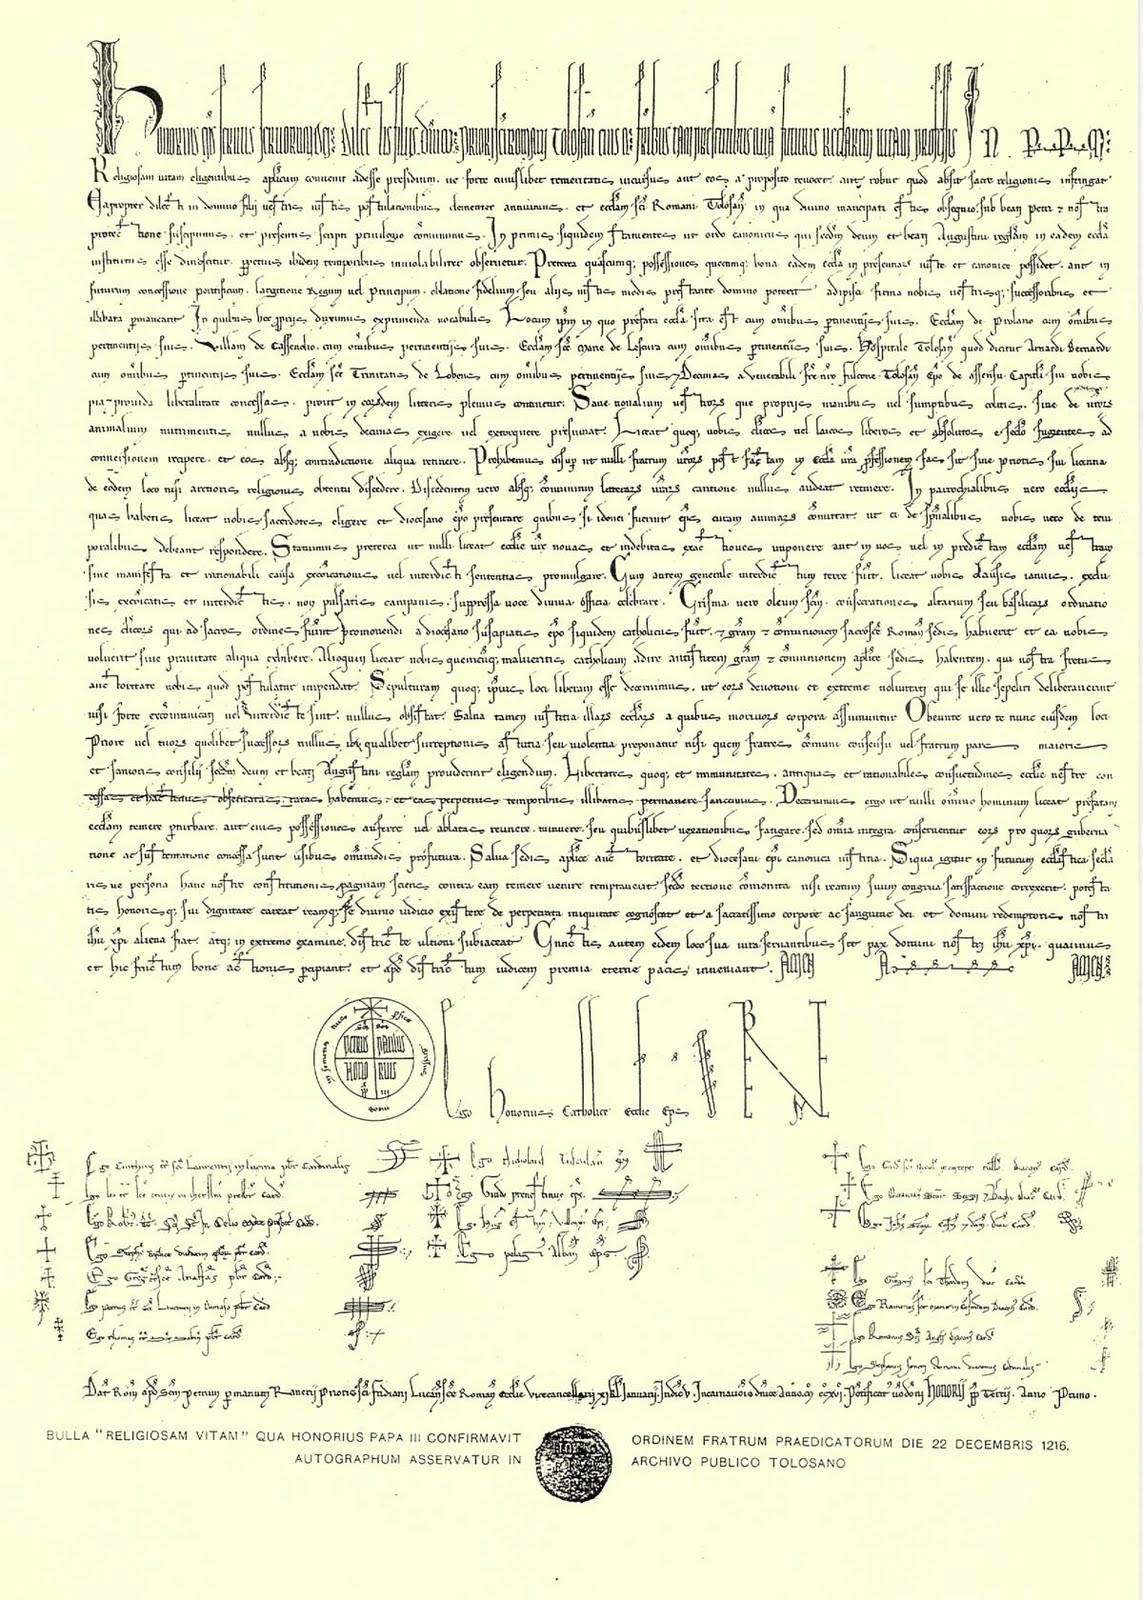 Honorius eps servus servorum dei. Dilectis filiis Dominico priori sci Romani Tolosan eiusq; fratribus tam presentibus quam futuris regularem vitam professis IN PPM.
Religiosam vitam eligentibus aplicum convenit adesse presidium. ne forte cuiuslibet temeritatis incursus aut eos a proposito revocet. aut robur quod absit sacre religionis infringat
Eapropter dilecti in domino filii vestris iustis postulationibus clementer annuimus. et ecclam sci Romani Tolosan in qua divino mancipati estis obsequio, sub beati Petri et nostra
protectione suscipimus. et presentis scripti privilegio communimus. In primis siquidem statuentes ut ordo canonicus qui secdm deum et beati Augustini reglam in eadem eccla
institutus esse dinoscitur. ppetuis ibidem temporibus inviolabiliter observetur. Preterea quascumq; possessiones quecumq; bona eadem eccla in presentiarum iuste et canonice possidet. aut in
futurum concessione pontificum. largitione Regum vel Principum. oblatione fidelium seu aliis iustis modis prestante domino poterit adipisci. firma vobis vestrisq; successoribus et
illibata pmaneant. In quibus hec ppriis duximus exprimenda vocabulis. Locum ipm in quo prefata eccla sita est cum omibus ptinentiis suis. Ecclam de Prolano cum omibus
pertinentiis suis. Villam de Cassenolio. cum omibus pertinentiis suis. Ecclam sce Marie de Lescura cum omibus ptinentiis suis. Hospitale Tolosan quod dicitur Arnardi Bernardi
cum omibus ptinentiis suis. Ecclam sce Trinitatis de Lobens cum omibus pertinentiis suis. Decimas a venerabili fre nro Fulcone Tolosan epo de assensu Capitli sui vobis
pia et provida liberalitate concessas. prout in eorsdem litteris plenius continetur. Sane novalium vestrors que propriis manibus vel sumptibus colitis. sive de vrors
animalium nutrimentis nullus a vobis decimas exigere vel extorquere presumat. Liceat quoq; vobis clicos vel laicos liberos et absolutos e sclo fugientes ad
conversionem recipere. et eos absq; contradictione aliqua retinere. Prohibemus insup ut nulli fratrum vrors post factam in eccla vra pfessionem fas sit sine prioris sui licentia
de eodem loco nisi arctioris religionis obtentu discedere. Discedentem vero absq; communium litterars vrars cautione nullus audeat retinere. In parrochialibus vero ecclis
quas habetis liceat vobis sacerdotes eligere et diocesano epo presentare quibus si idonei fuerint eps curam animars committat. ut ei de spualibus vobis vero de tem
poralibus debeant respondere. Statuimus preterea ut nulli liceat ecclie vre novas et indebitas exactiones imponere aut in vos vel in predictam ecclam vestram
sine manifesta et rationabili causa excoicationis vel interdicti sententias promulgare. Cum autem generale interdictum terre fuit. liceat vobis clausis ianuis. exclu
sis excoicatis et interdictis. non pulsatis campanis. suppressa voce divina officia celebrare. Crisma vero oleum scm. consecrationes altarium seu basilicars ordinatio
nes clicors qui ad sacros ordines fuint promovendi a diocesano suscipiatis epo siquidem catholicus fuit. et gram et communionem sacrosce Roman sedis habuerit et ea vobis
voluerit sine pravitate aliqua exhibere. Alioquin liceat vobis quemcumq; malueritis catholicum adire antistitem gram et communionem aplice sedis habentem. qui nostra fretus
auctoritate vobis quod postulatur impendat. Sepulturam quoq; ipius loci liberam esse decernimus. ut eors devotioni et extreme voluntati qui se illic sepeliri deliberaverint
nisi forte excomunicati vel interdicti sint. nullus obsistat. Salva tamen iustitia illars ecclars a quibus mortuors corpora assumuntur. Obeunte vero te nunc eiusdem loci
Priore vel tuors quolibet successors nullus ibi qualibet surreptionis astutia seu violentia preponatur nisi quem fratres comuni consensu vel fratrum pars maioris
et sanioris consilii secdm deum et beati Augustini reglam providerint eligendum. Libertates quoq; et immunitates. antiquas et rationabiles consuetudines ecclie vestre con
cessas et hactenus observatas ratas habemus. et eas perpetuis temporibus illibatas permanere sancimus. Decernimus ergo ut nulli omino hominum liceat prefatam
ecclam temere pturbare. aut eius possessiones auferre vel ablatas retinere. minuere. seu quibuslibet vexationibus fatigare. sed omia integra conserventur eors pro quors guberna
tione ac sustentatione concessa sunt usibus omimodis profutura. Salva sedis aplice auctoritate. et diocesani epi canonica iustitia. Siqua igitur in futurum ecclastica secla
risve persona hanc nostre constitutionis paginam sciens contra eam temere venire temptaverit. secdo tertiove commonita nisi reatum suum congrua satisfactione correxerit. potesta
tis honorisq; sui dignitate careat reamq; se divino iudicio existere de perpetrata iniquitate cognoscat et a sacratissimo corpore ac sanguine dei et domini redemptoris nostri
ihu xpi aliena fiat. atq; in extremo examine. districte ultioni subiaceat. Cunctis autem eidem loco sua iura servantibus sit pax domini nostri ihu xpi. quatinus
et hic fructum bone actionis pcipiant. et apd districtum iudicem premia eterne pacis inveniant. AMEN AMEN AMEN
PETRUS PAULUS
HONO RIUS
Ego Honorius Catholice Ecclie Eps
Ego Cinthius Laurentii in Lucina pbr Cardinalis
Ego Nicholaus Tusculan eps
Ego Guido prenestinus eps
Ego pelagius Alban eps
Ego Stephanus
Dat Rom apd Scm Petrum p manum Ranerii Prioris sci Fridiani Lucan sce Roman Ecclie Vicecancellarii xi kl Ianuarii. Indict v. Incarnationis dnice Anno m cc xvi. Pontificat vo domni Honorii pp Tertii. Anno Primo.
BULLA "RELIGIOSAM VITAM" QUA HONORIUS PAPA III CONFIRMAVIT ORDINEM FRATRUM PRAEDICATORUM DIE 22 DECEMBRIS 1216.
AUTOGRAPHUM ASSERVATUR IN ARCHIVO PUBLICO TOLOSANO